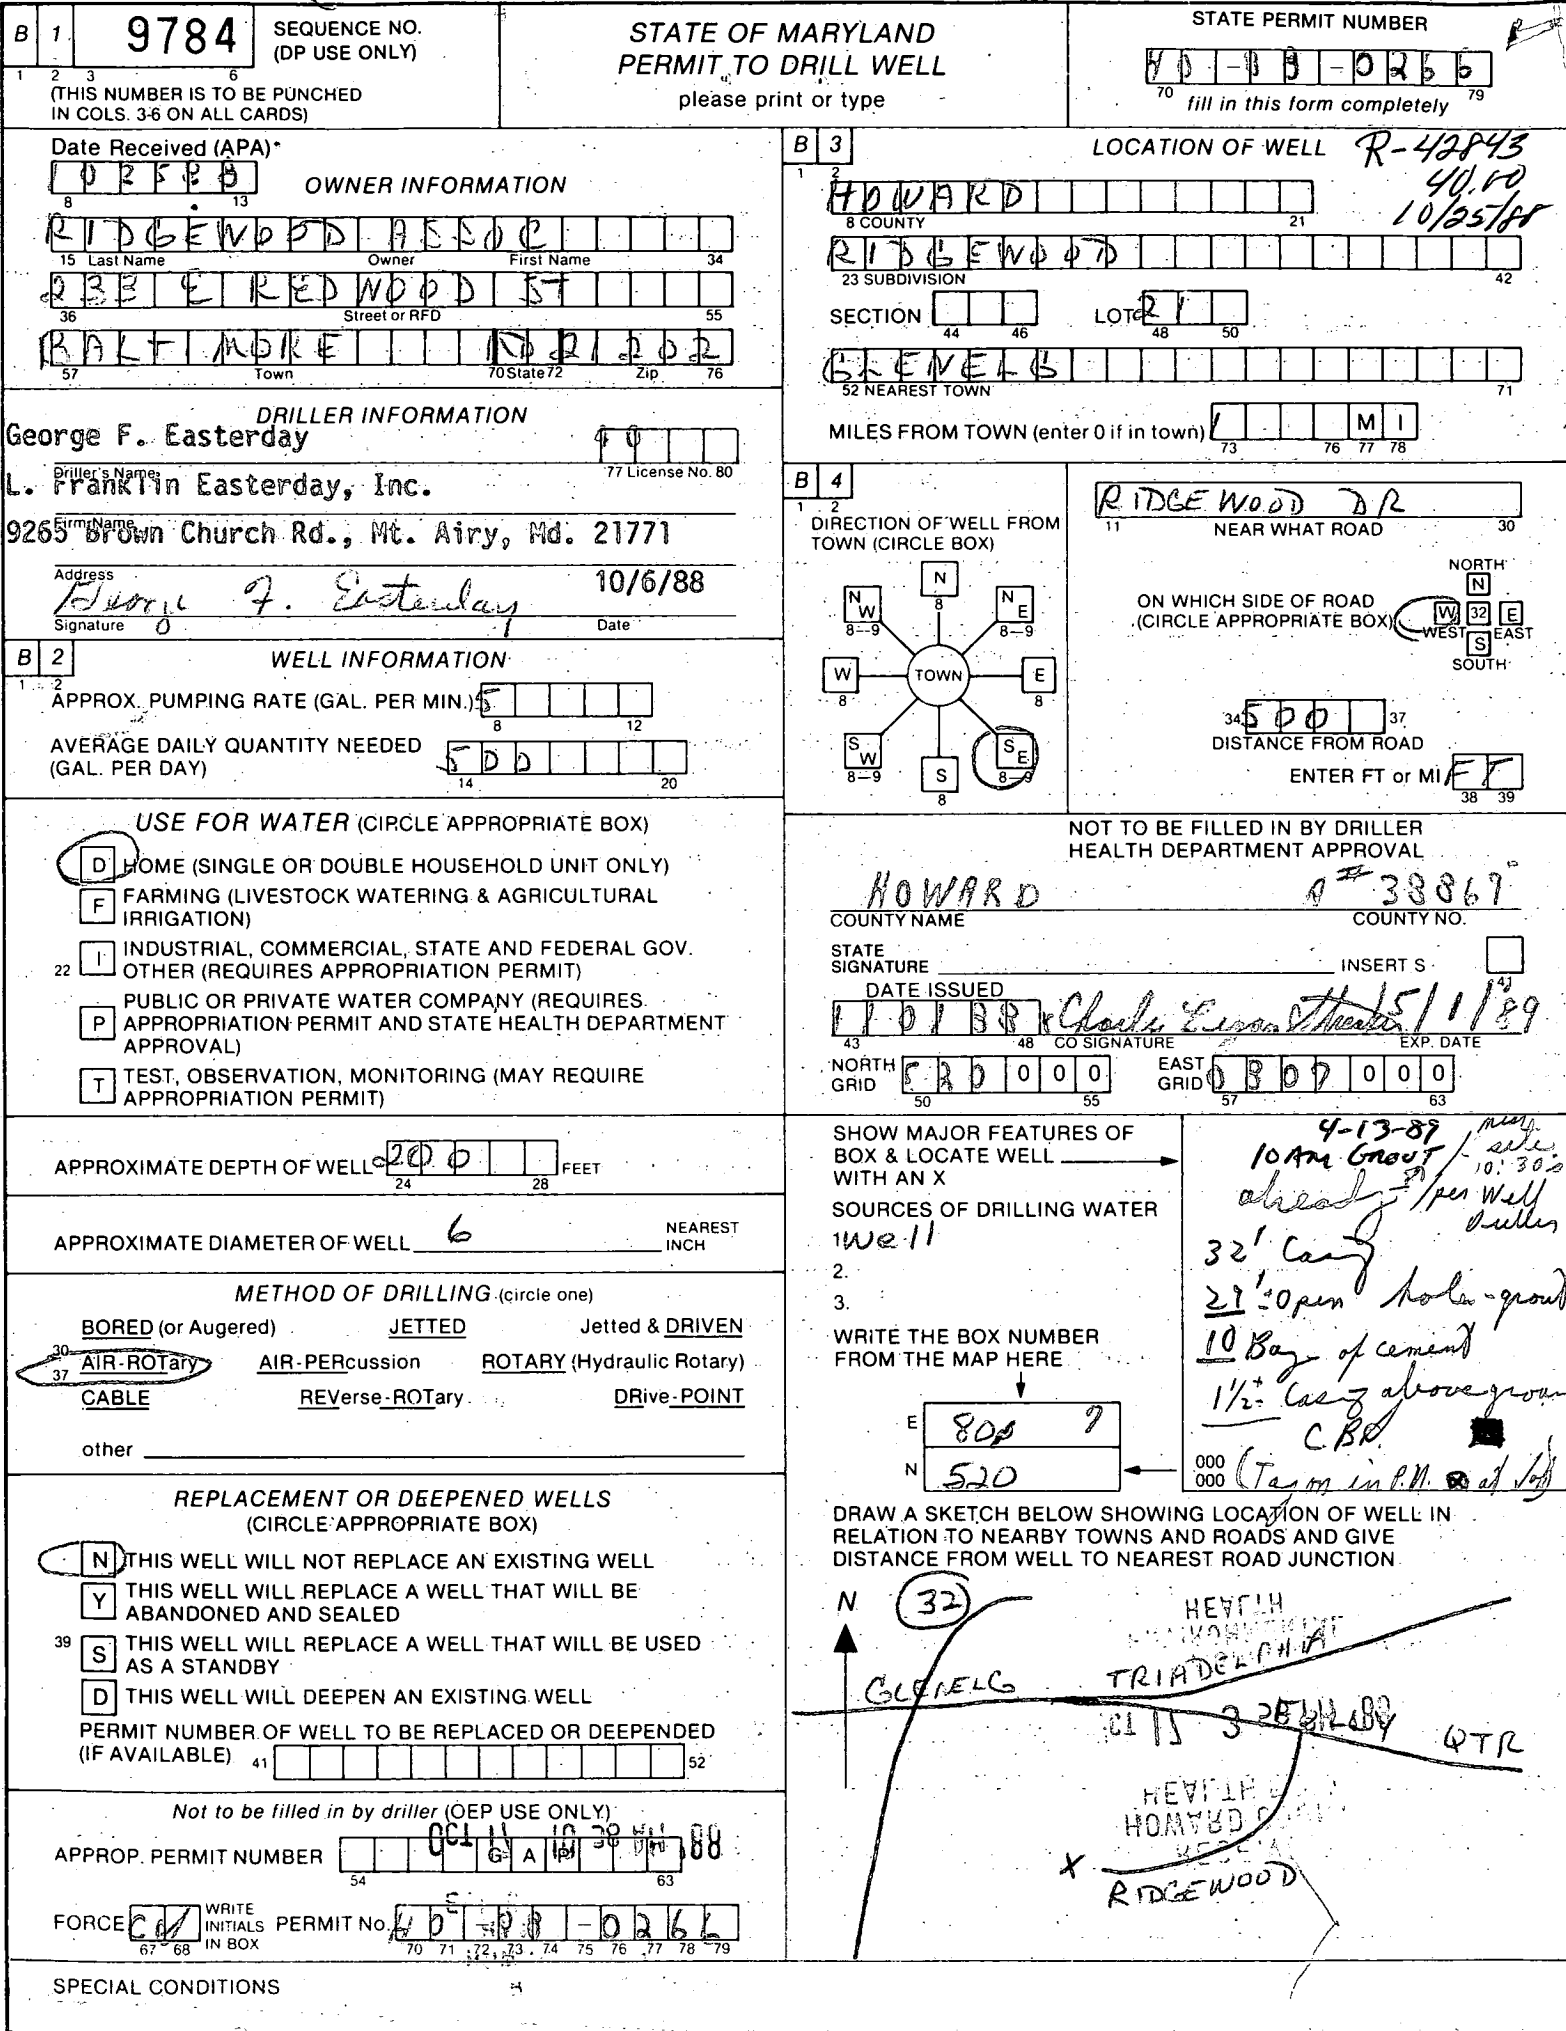 B 1 9784 SEQUENCE NO.
(DP USE ONLY)
1 2 3 6
(THIS NUMBER IS TO BE PUNCHED
IN COLS. 3-6 ON ALL CARDS)
STATE OF MARYLAND
PERMIT TO DRILL WELL
please print or type
STATE PERMIT NUMBER
HO-88-0266
70 fill in this form completely 79
Date Received (APA)
102588
8 13
OWNER INFORMATION
RIDGEWOOD ASSOC
15 Last Name Owner First Name 34
233 E REDWOOD ST
36 Street or RFD 55
BALTIMORE MD 21202
57 Town 70 State 72 Zip 76
DRILLER INFORMATION
George F. Easterday 40
Driller's Name 77 License No. 80
L. Franklin Easterday, Inc.
Firm Name
9265 Brown Church Rd., Mt. Airy, Md. 21771
Address
George F. Easterday 10/6/88
Signature Date
B 2 WELL INFORMATION
1 2
APPROX. PUMPING RATE (GAL. PER MIN.) 5
8 12
AVERAGE DAILY QUANTITY NEEDED
(GAL. PER DAY) 500
14 20
USE FOR WATER (CIRCLE APPROPRIATE BOX)
D HOME (SINGLE OR DOUBLE HOUSEHOLD UNIT ONLY)
F FARMING (LIVESTOCK WATERING & AGRICULTURAL
IRRIGATION)
22 I INDUSTRIAL, COMMERCIAL, STATE AND FEDERAL GOV.
OTHER (REQUIRES APPROPRIATION PERMIT)
P PUBLIC OR PRIVATE WATER COMPANY (REQUIRES
APPROPRIATION PERMIT AND STATE HEALTH DEPARTMENT
APPROVAL)
T TEST, OBSERVATION, MONITORING (MAY REQUIRE
APPROPRIATION PERMIT)
APPROXIMATE DEPTH OF WELL 200 FEET
24 28
APPROXIMATE DIAMETER OF WELL 6 NEAREST
INCH
METHOD OF DRILLING (circle one)
BORED (or Augered) JETTED Jetted & DRIVEN
30
37 AIR-ROTary AIR-PERcussion ROTARY (Hydraulic Rotary)
CABLE REVerse-ROTary DRive-POINT
other
REPLACEMENT OR DEEPENED WELLS
(CIRCLE APPROPRIATE BOX)
N THIS WELL WILL NOT REPLACE AN EXISTING WELL
Y THIS WELL WILL REPLACE A WELL THAT WILL BE
ABANDONED AND SEALED
39 S THIS WELL WILL REPLACE A WELL THAT WILL BE USED
AS A STANDBY
D THIS WELL WILL DEEPEN AN EXISTING WELL
PERMIT NUMBER OF WELL TO BE REPLACED OR DEEPENDED
(IF AVAILABLE) 41 52
Not to be filled in by driller (OEP USE ONLY)
APPROP. PERMIT NUMBER G A P
54 63
FORCE WRITE
INITIALS
IN BOX PERMIT NO. HO-88-0266
67 68 70 71 72 73 74 75 76 77 78 79
SPECIAL CONDITIONS
B 3 LOCATION OF WELL R-42843
40.00
10/25/88
1 2
HOWARD
8 COUNTY 21
RIDGEWOOD
23 SUBDIVISION 42
SECTION LOT 21
44 46 48 50
GLENELG
52 NEAREST TOWN 71
MILES FROM TOWN (enter 0 if in town) 1 M I
73 76 77 78
B 4
1 2
DIRECTION OF WELL FROM
TOWN (CIRCLE BOX)
N
8
NW NE
8-9 8-9
W TOWN E
8 8
SW SE
8-9 8-9
S
8
RIDGEWOOD DR
11 NEAR WHAT ROAD 30
ON WHICH SIDE OF ROAD
(CIRCLE APPROPRIATE BOX)
NORTH
N
W 32 E
WEST EAST
S
SOUTH
34 500 37
DISTANCE FROM ROAD
ENTER FT or MI FT
38 39
NOT TO BE FILLED IN BY DRILLER
HEALTH DEPARTMENT APPROVAL
HOWARD A# 38867
COUNTY NAME COUNTY NO.
STATE
SIGNATURE INSERT S
41
DATE ISSUED
110188 5/1/89
43 48 CO SIGNATURE EXP. DATE
NORTH
GRID 520 000
50 55
EAST
GRID 0807 000
57 63
SHOW MAJOR FEATURES OF
BOX & LOCATE WELL
WITH AN X
SOURCES OF DRILLING WATER
1 Well
2.
3.
WRITE THE BOX NUMBER
FROM THE MAP HERE
E 800 7
N 520
000
000
4-13-89
10 AM GROUT
already per Well
Driller
32' Casing
29' Open hole - grout
10 Bags of cement
1½ Casing above
DRAW A SKETCH BELOW SHOWING LOCATION OF WELL IN
RELATION TO NEARBY TOWNS AND ROADS AND GIVE
DISTANCE FROM WELL TO NEAREST ROAD JUNCTION
N 32
GLENELG TRIADELPHIA
QTR
X RIDGEWOOD